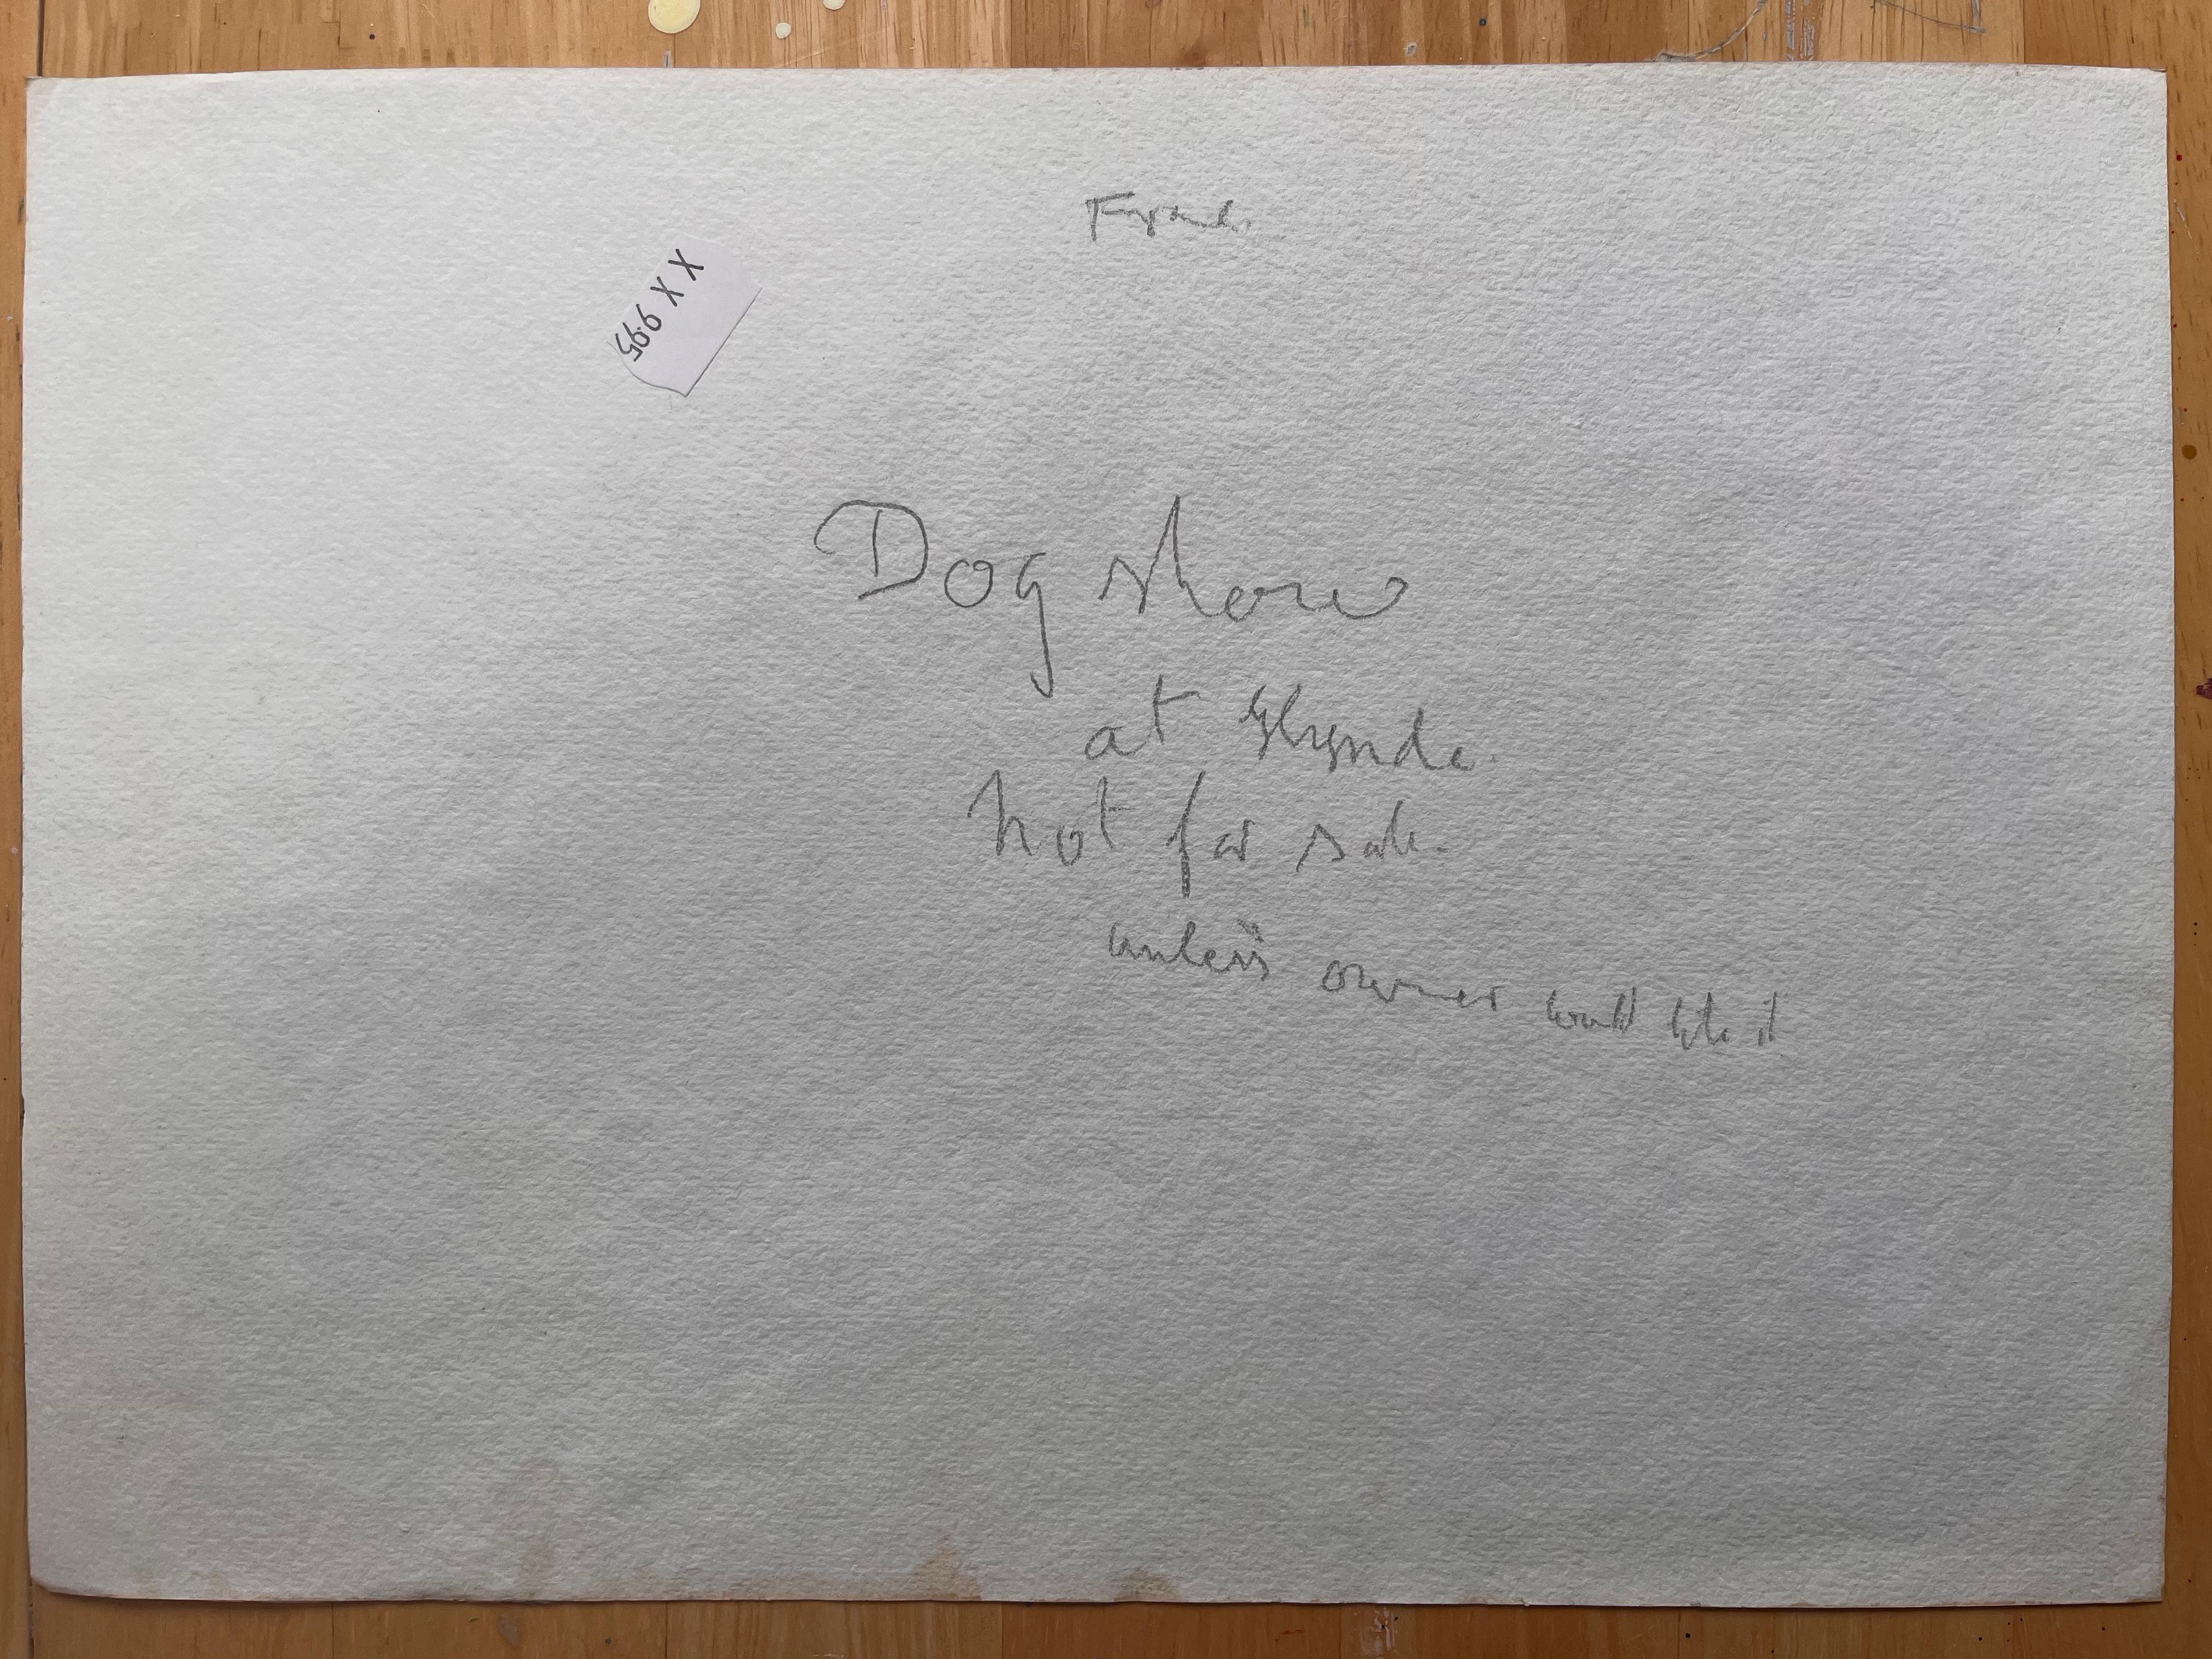 X X 9.95
Dog show
at Glynde.
Not for sale.
unless owner would like it